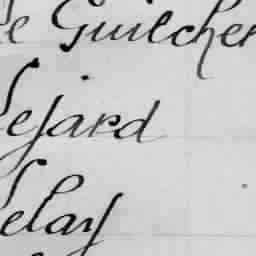 Le Guilcher
Lejard
Lelay